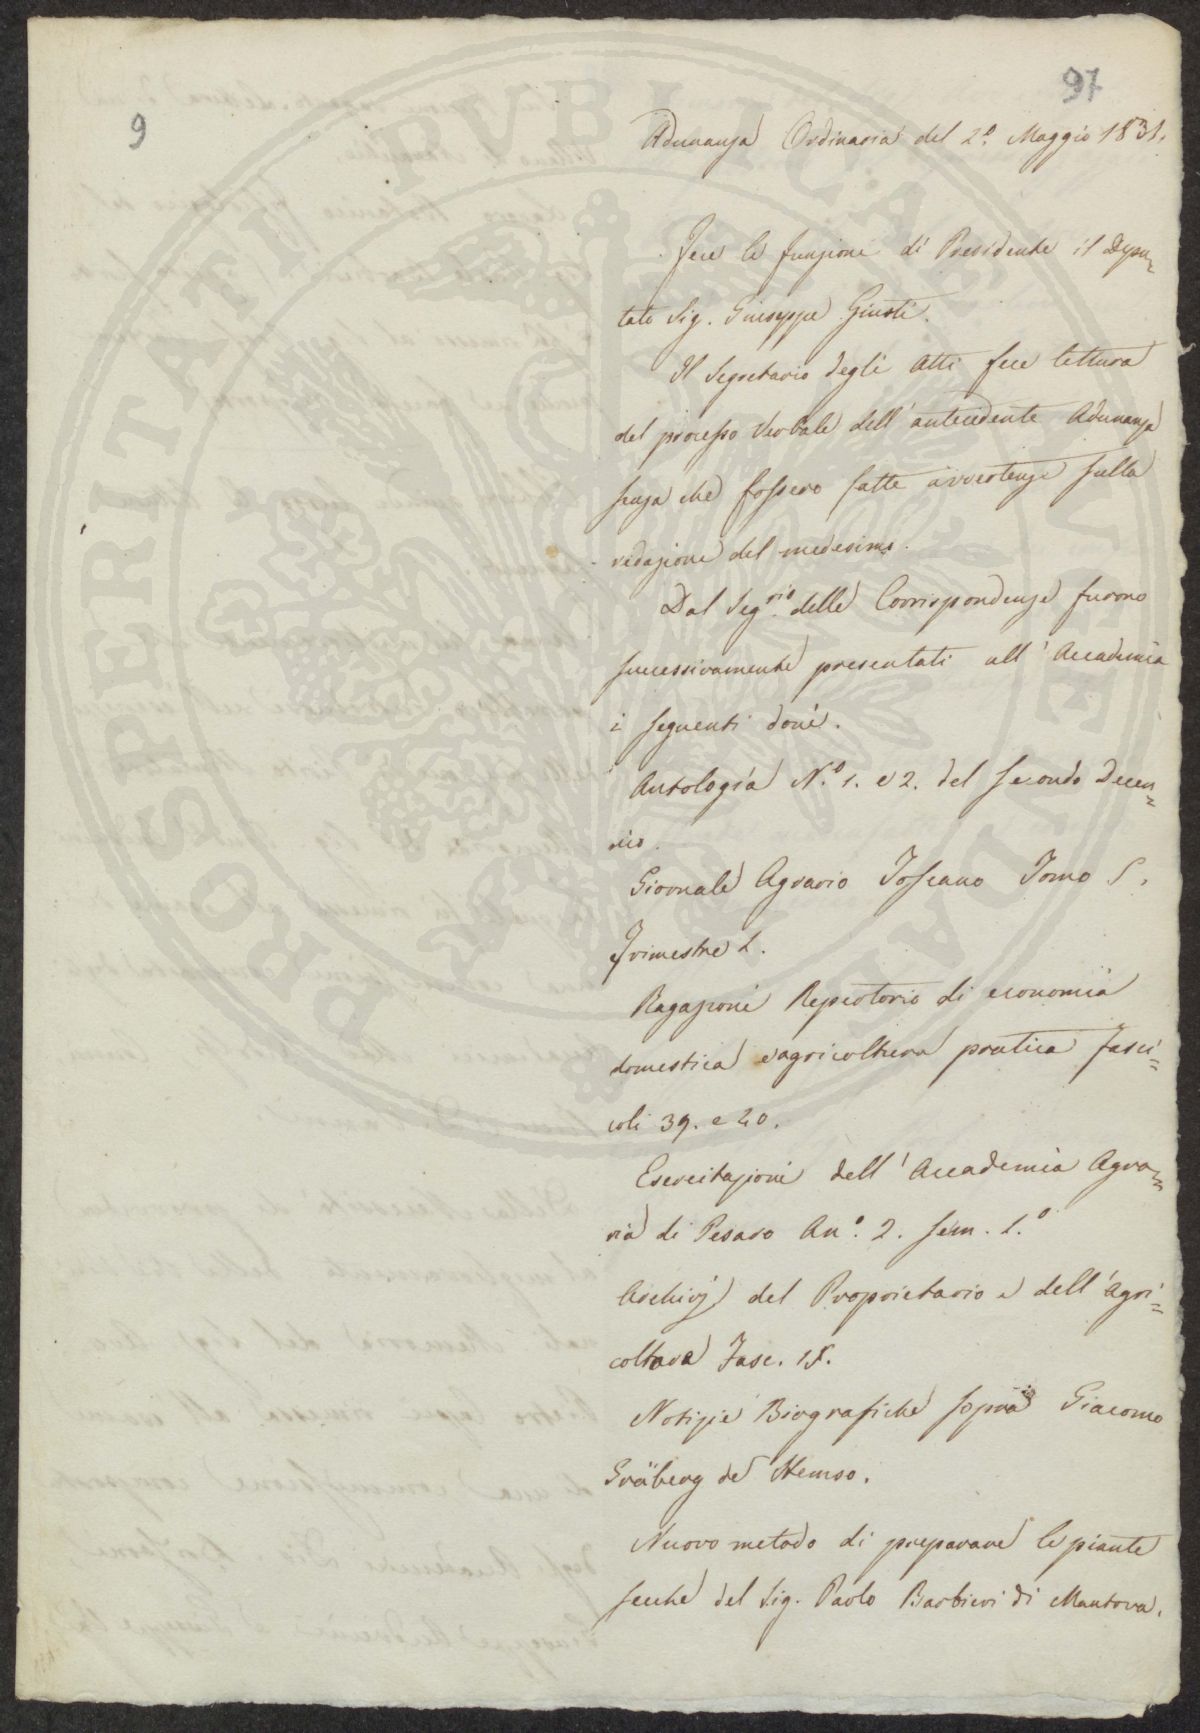 97
9
Adunanza Ordinaria del 2.° Maggio 1831.
Fece le funzioni di Presidente il Depu=
tato Sig. Giuseppe Giusti.
Il Segretario degli Atti fece lettura
del processo Verbale dell'antecedente Adunanza
senza che fossero fatte avvertenze sulla
redazione del medesimo.
Dal Seg.rio delle Corrispondenze furono
successivamente presentati all'Accademia
i seguenti doni.
Antologia N.° 1. e 2. del secondo Decen=
nio.
Giornale Agrario Toscano Tomo 5.
Trimestre 1.
Ragazzoni Repertorio di economia
domestica e agricoltura pratica fasci=
coli 39. e 40.
Esercitazioni dell'Accademia Agra=
ria di Pesaro An.° 2. Sem. 1.°
Archivj del Proprietario e dell'Agri=
coltore Fasc. 15.
Notizie Biografiche sopra Giacomo
Gräberg de Hemso.
Nuovo metodo di preparare le piante
secche del Sig. Paolo Barbieri di Mantova.
PROSPERITATI PVBLICAE ADAVGENDAE